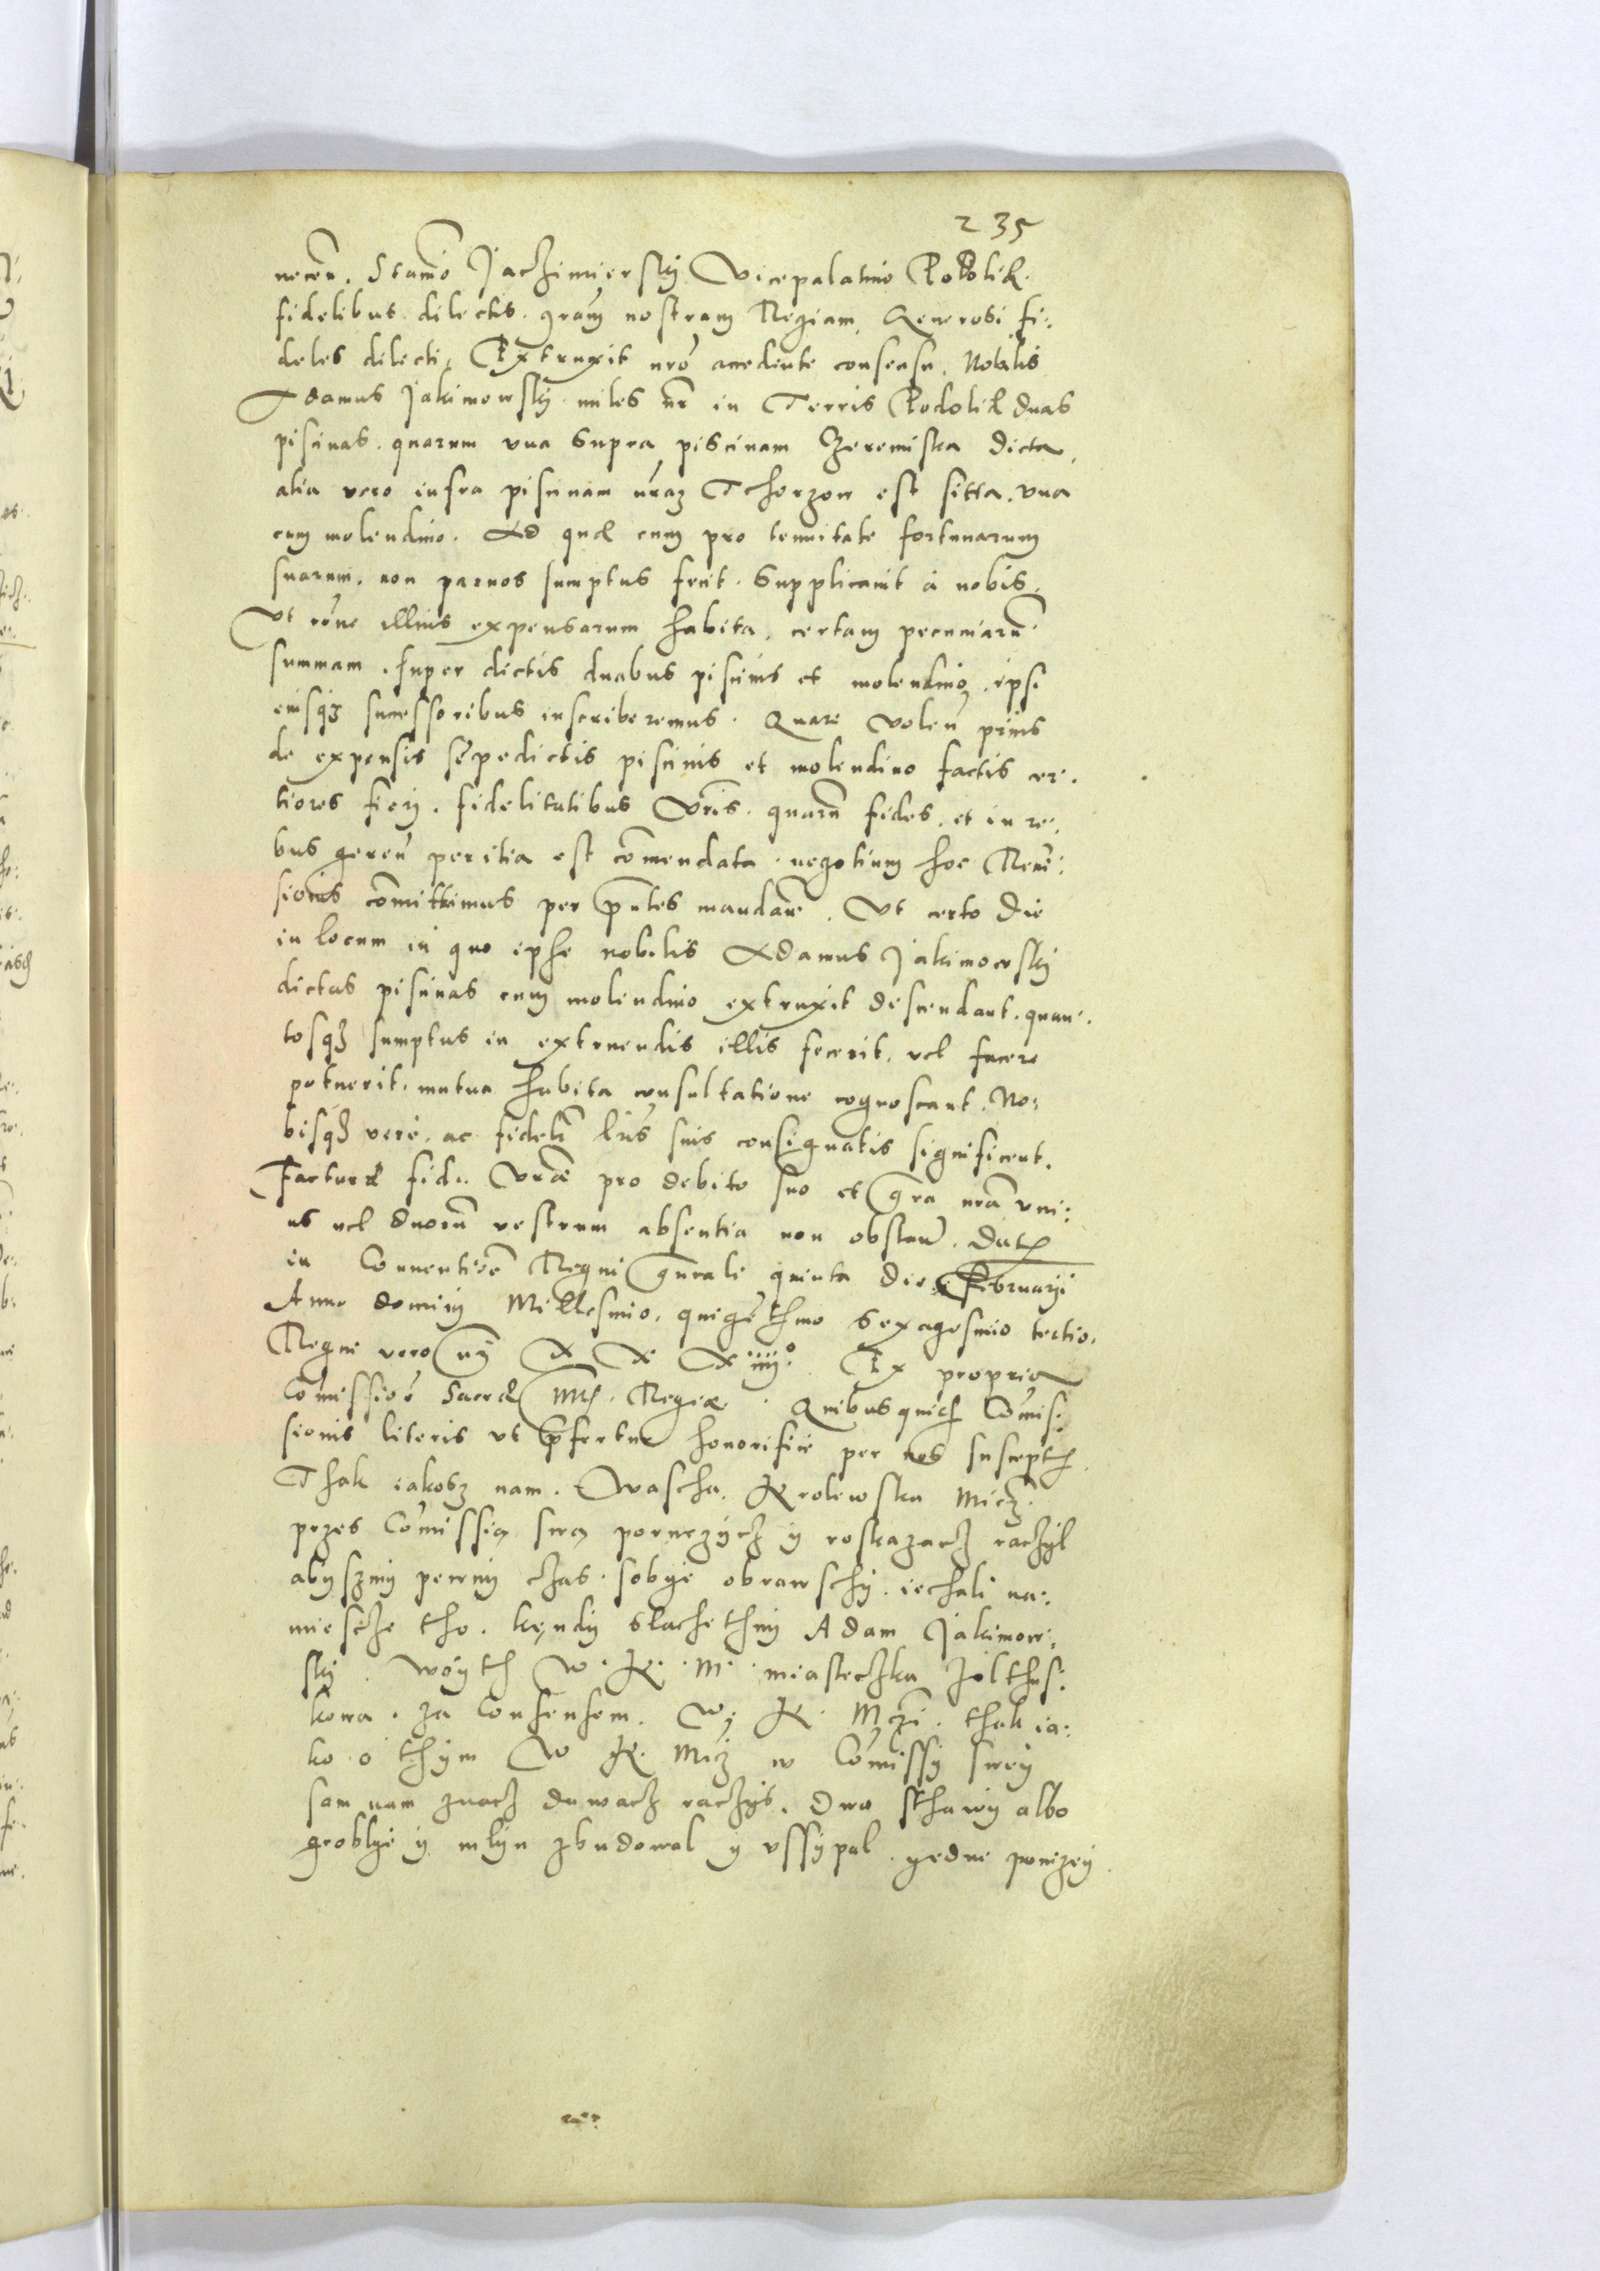 235
necen. Stanio Jaczimierskij Vicepalatino Podoliæ
fidelibus dilectis. gram nostram Regiam. Generosi fi:
deles dilecti, Extruxit nro accedente consensu, Nobilis
Adamus Jakimowskij miles nr in Terris Podoliæ duas
piscinas. quarum vna supra piscinam Zeremiska dicta,
alia vero infra piscinam nram Tchorzow est sitta. vna
cum molendino. Ad quæ cum pro tenuitate fortunarum
suarum. non paruos sumptus fecit. Supplicauit a nobis.
Vt rone illius expensarum habita, certam pecuniaru
summam. super dictis duabus piscinis et molendino, ipsi
eiusqz successoribus inscriberemus. Quare volen prius
de expensis sepedictis piscinis et molendino factis cer:
tiores fierj. fidelitatibus Vris. quaru fides. et in re:
bus geren peritia est comendata. negotium hoc Reui:
sionis comittimus per pntes mandan. Vt certo die
in locum in quo ipse nobilis Adamus Jakimowskij
dictas piscinas cum molendino extruxit descendant. quan:
tosqz sumptus in extruendis illis fecerit. vel facere
potuerit. mutua habita consultatione cognoscant. No:
bisqz vere. ac fideli lris suis consignatis significent.
Facturæ fid. Vræ pro debito suo et gra nra vni:
us vel duoru vestrum absentia non obstan. Dat
in Conuentione Regni gnrali quinta die Februarij
Anno dominj Millesimo. quigethmo sexagesimo tertio.
Regni vero nri X X X iiij°. Ex propria
Comissione Sacræ Mtis. Regiæ. Quibusquid Comis:
sionis literis vt prefertur honorifice per nos suscept
Thak iakosz nam. Wascha. Krolewska Micz.
przes Comissią swą poruczycz y roskazacz raczyl
abysmy pewny czas. sobye obrawschy. iechali na:
miescze tho. kendy slachethny Adam Jakimow:
skj. woyth W. K. M. miasteczka Zolthes:
kowa. za Consensem. W. K. Mczi. thak ia:
ko o thym W K. Mcz w Comissy swey
sam nam znacz dawacz raczys. Dwa sthawy albo
groblye y mlyn zbudowal y vssypal. yedne ponizey